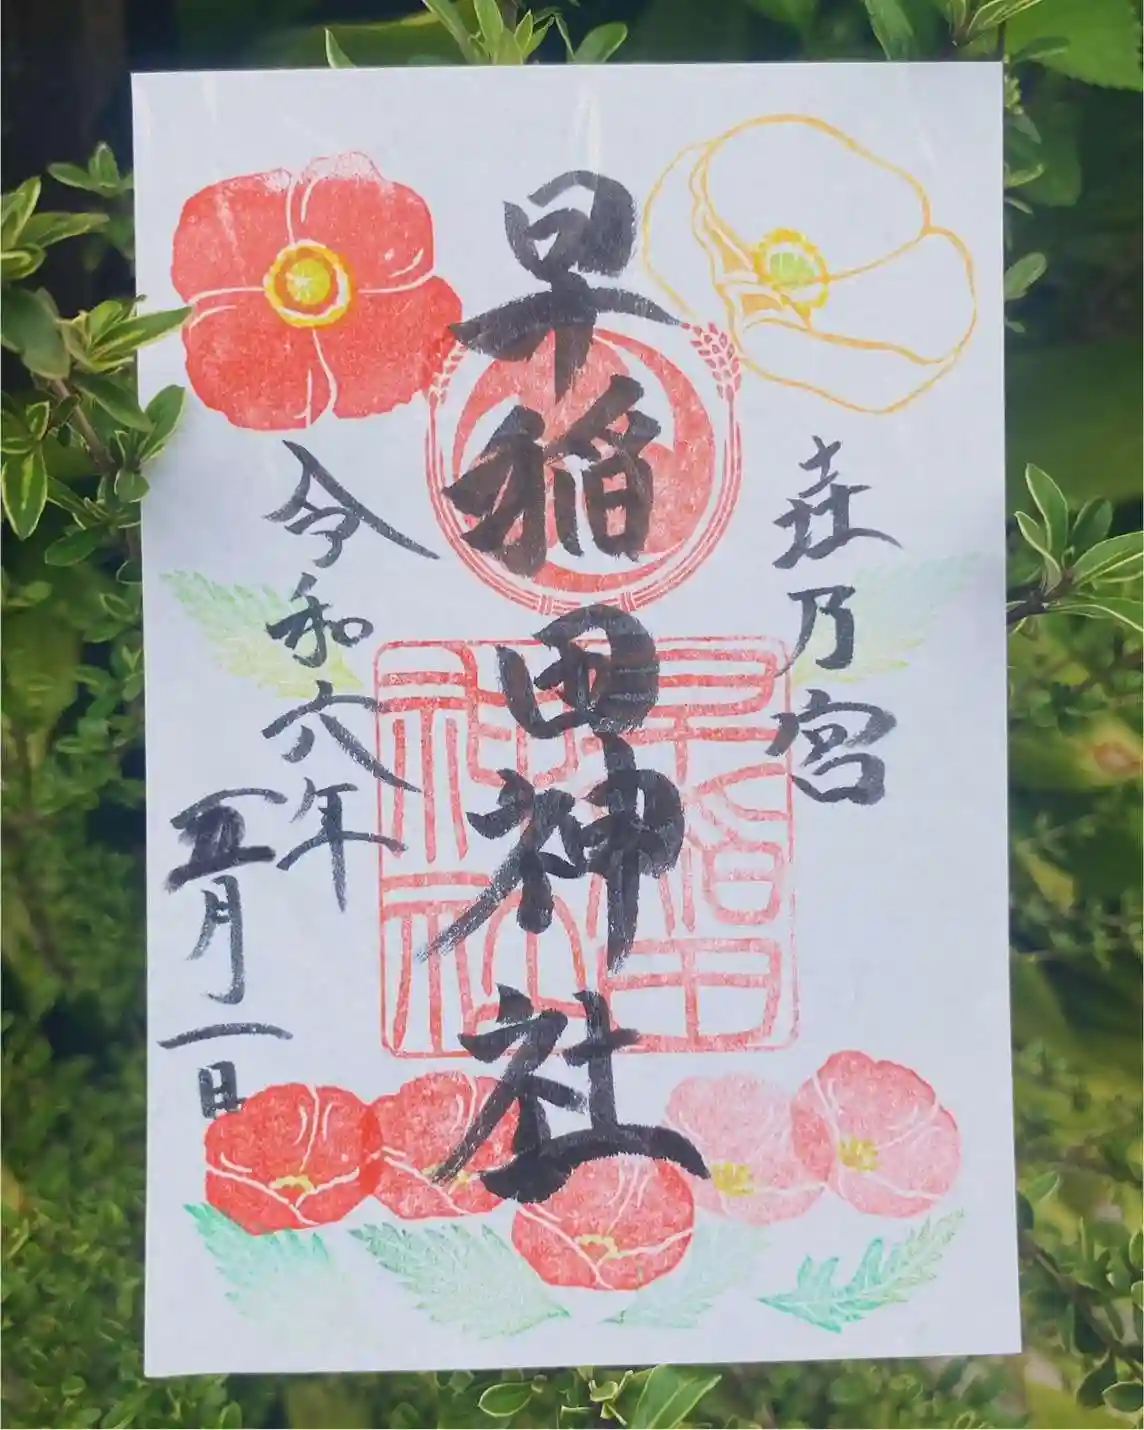 乃宮
早稲田神社
令和六年
五月一日
早稲田
神社